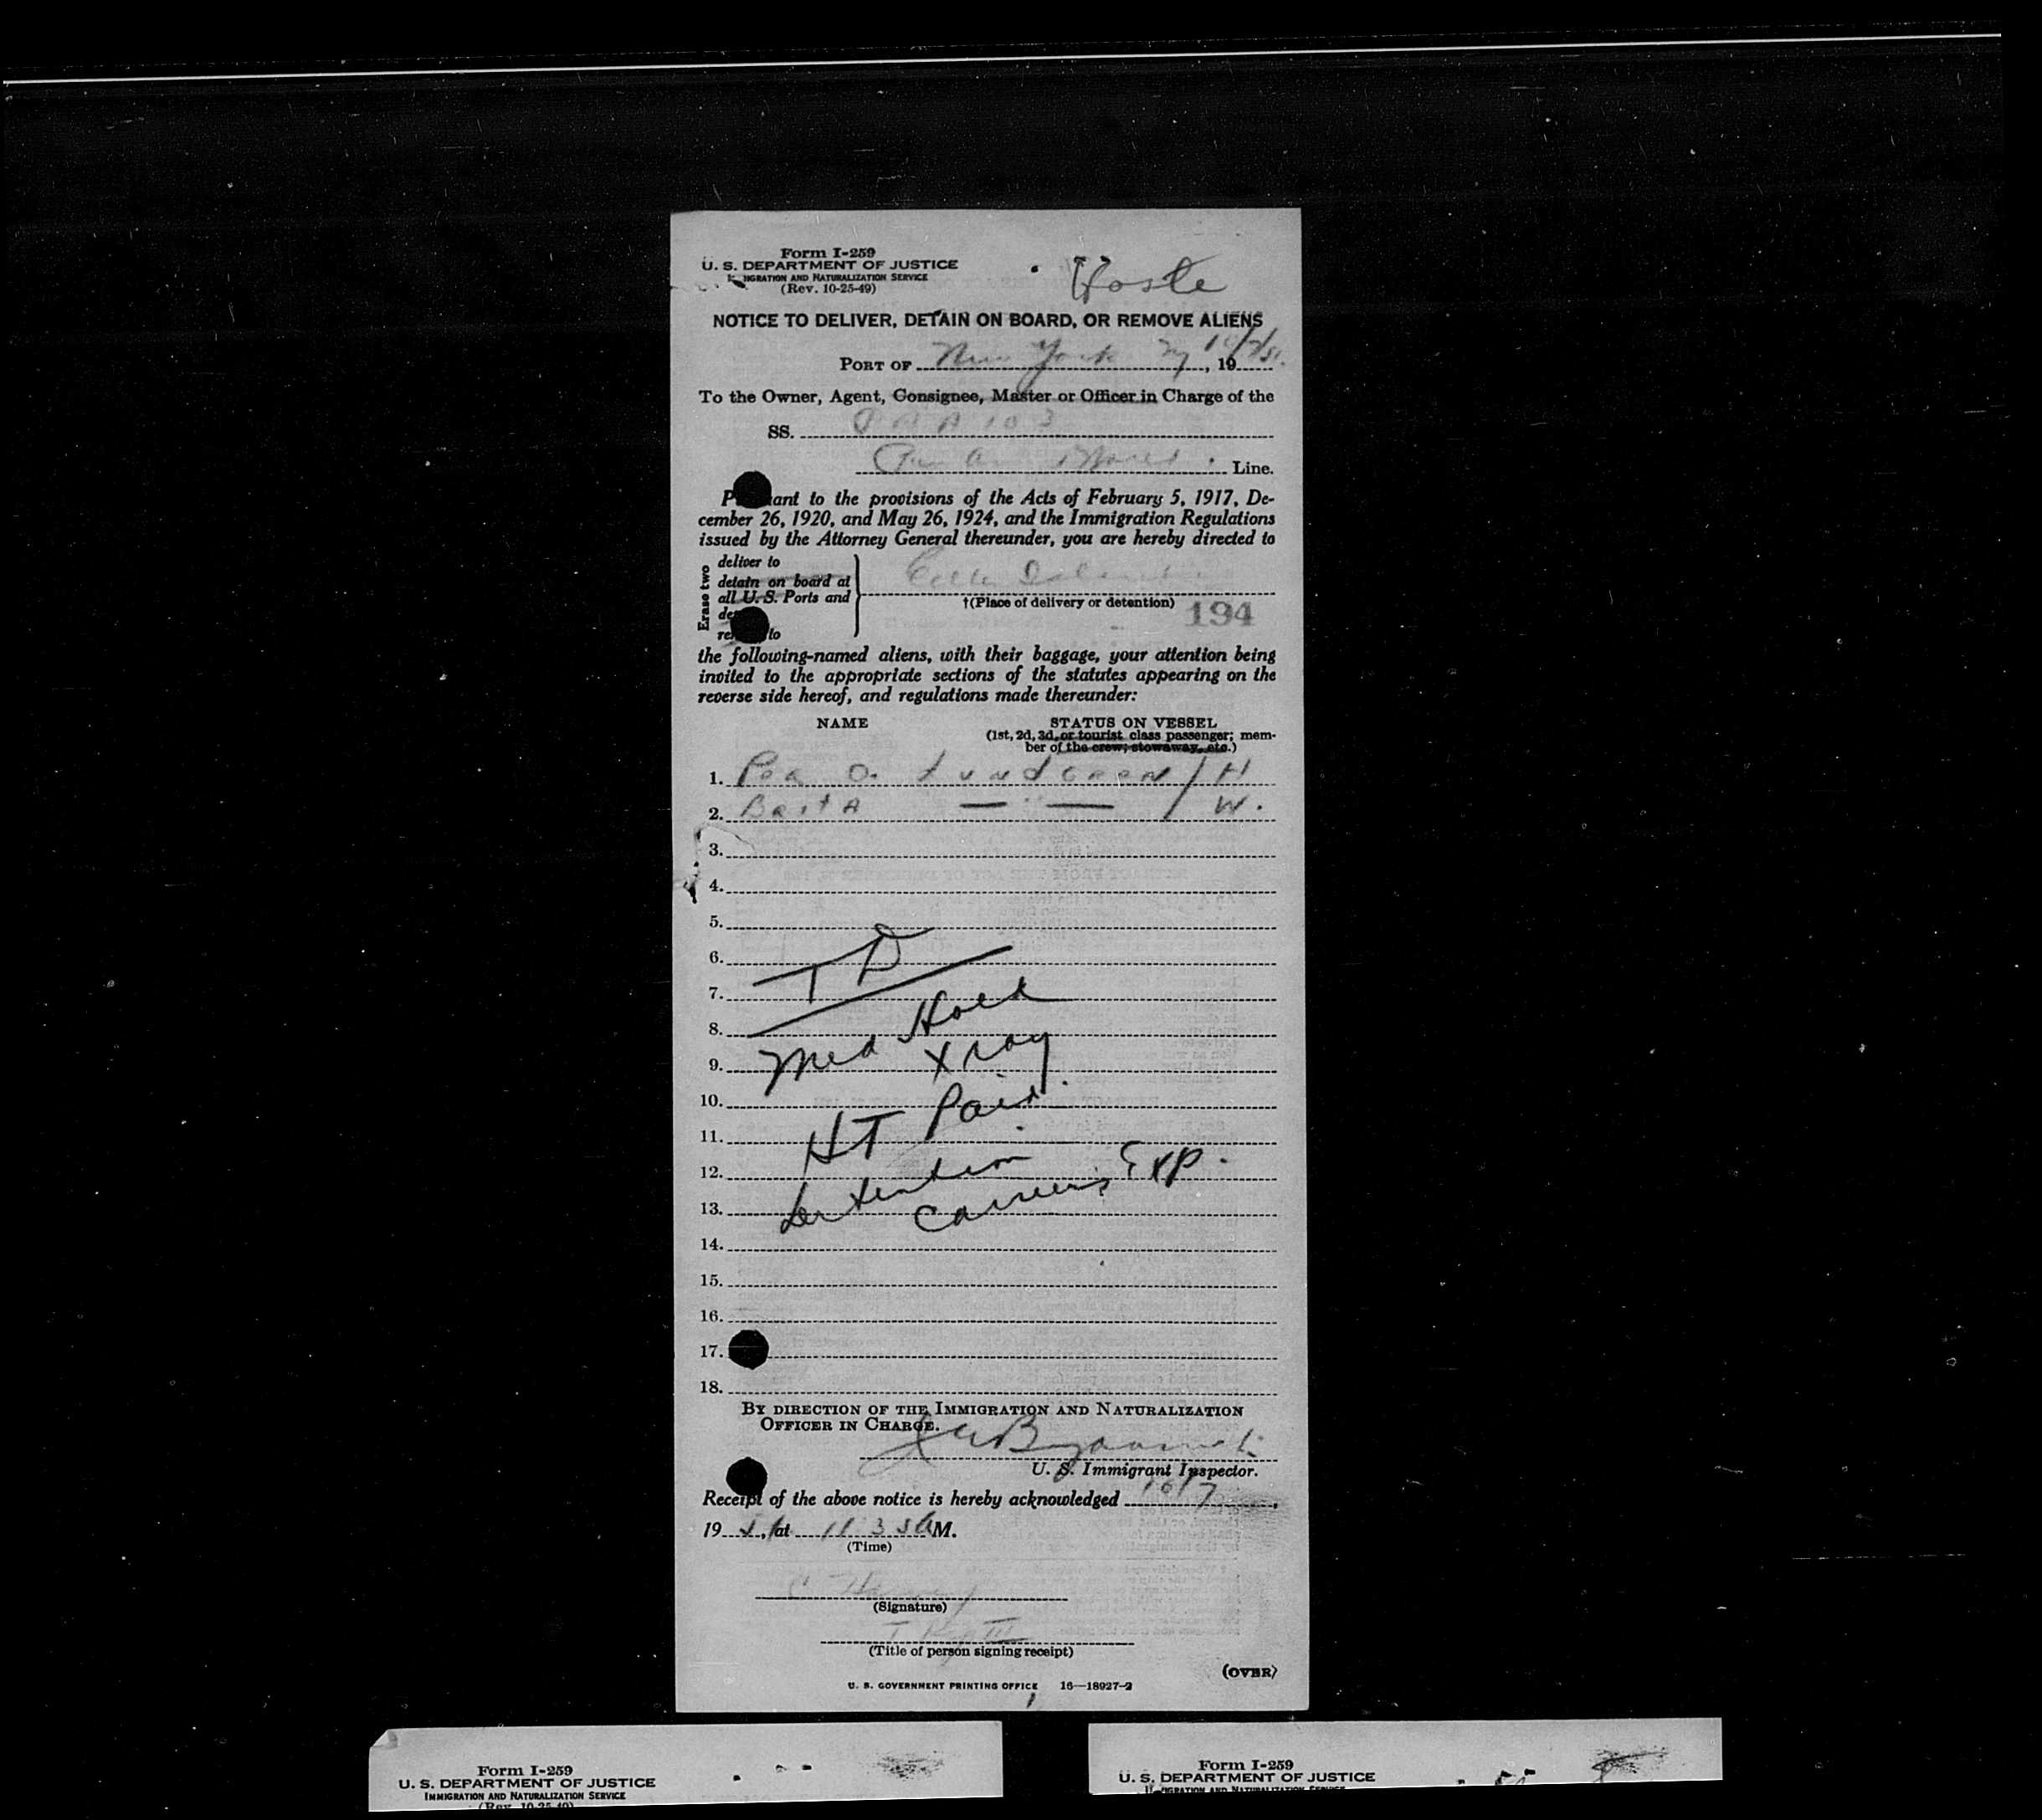 Form I-259
U. S. DEPARTMENT OF JUSTICE
IMMIGRATION AND NATURALIZATION SERVICE
(Rev. 10-25-49)
NOTICE TO DELIVER, DETAIN ON BOARD, OR REMOVE ALIENS
PORT OF New York NY 10/7/51, 19
To the Owner, Agent, Consignee, Master or Officer in Charge of the
SS. PAA 103
Pan Am World Line.
Pursuant to the provisions of the Acts of February 5, 1917, De-
cember 26, 1920, and May 26, 1924, and the Immigration Regulations
issued by the Attorney General thereunder, you are hereby directed to
Erase two
deliver to
detain on board at
all U. S. Ports and
Ellis Island
†(Place of delivery or detention)
194
to
the following-named aliens, with their baggage, your attention being
invited to the appropriate sections of the statutes appearing on the
reverse side hereof, and regulations made thereunder:
NAME STATUS ON VESSEL
(1st, 2d, 3d, or tourist class passenger; mem-
ber of the crew; stowaway, etc.)
1. Per O. Lundgren / H
2. Brita — " — / W.
3.
4.
5.
6.
7.
8.
9.
10.
11.
12.
13.
14.
15.
16.
17.
18.
TD
Med Hold
Xray
HT Paid
Detention
Carriers Exp.
BY DIRECTION OF THE IMMIGRATION AND NATURALIZATION
OFFICER IN CHARGE.
U. S. Immigrant Inspector.
Receipt of the above notice is hereby acknowledged 10/7,
19 51, at 11 35 AM.
(Time)
(Signature)
(Title of person signing receipt)
(OVER)
U. S. GOVERNMENT PRINTING OFFICE 16—18927-2
Form I-259
U. S. DEPARTMENT OF JUSTICE
IMMIGRATION AND NATURALIZATION SERVICE
(Rev. 10-25-49)
Form I-259
U. S. DEPARTMENT OF JUSTICE
IMMIGRATION AND NATURALIZATION SERVICE